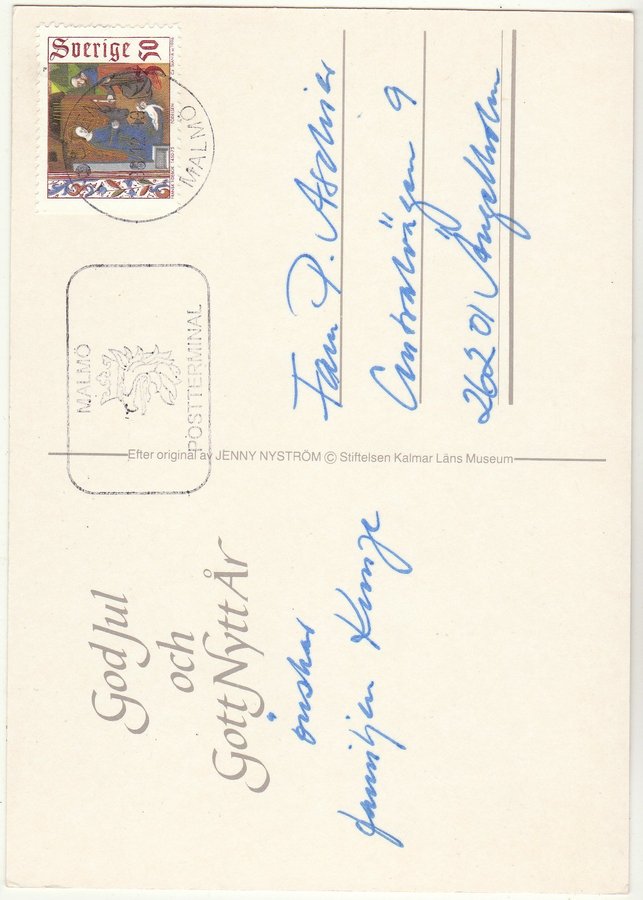 Sverige 50
MALMÖ
MALMÖ
POSTTERMINAL
God Jul
och
Gott Nytt År
önskar
familjen
Efter original av JENNY NYSTRÖM © Stiftelsen Kalmar Läns Museum
Fam P.
Centralvägen 9
262 01 Ängelholm